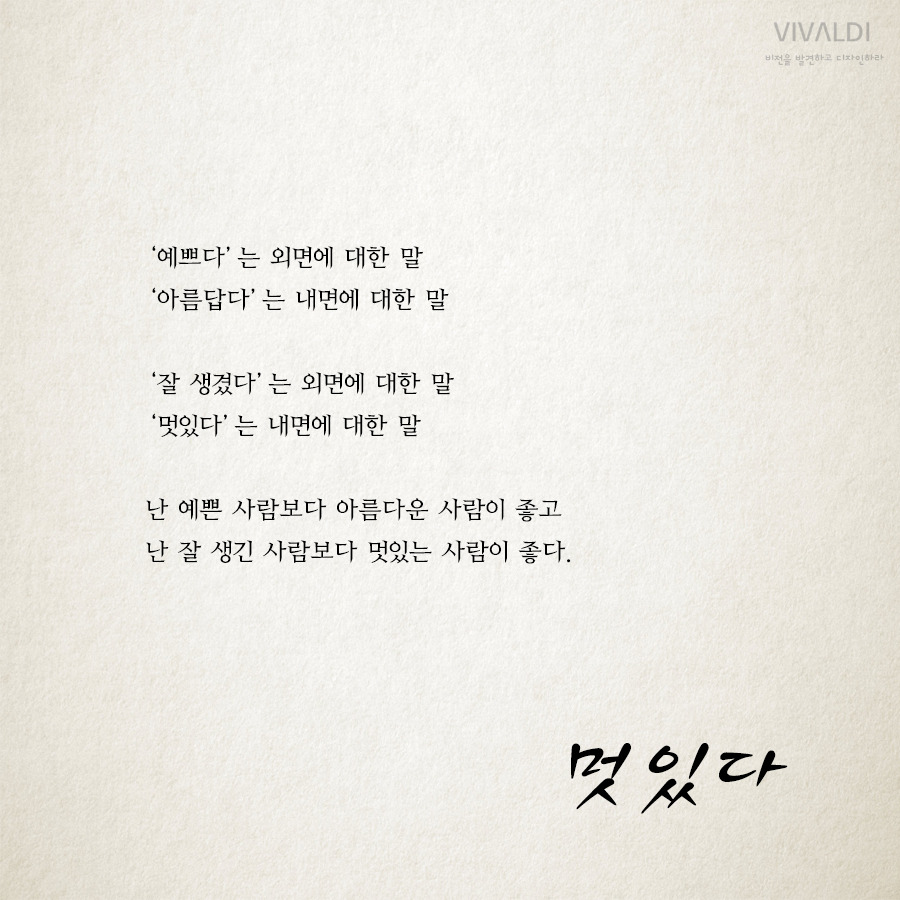 VIVALDI
비전을 발견하고 디자인하라
‘예쁘다’는 외면에 대한 말
‘아름답다’는 내면에 대한 말
‘잘 생겼다’는 외면에 대한 말
‘멋있다’는 내면에 대한 말
난 예쁜 사람보다 아름다운 사람이 좋고
난 잘 생긴 사람보다 멋있는 사람이 좋다.
멋있다